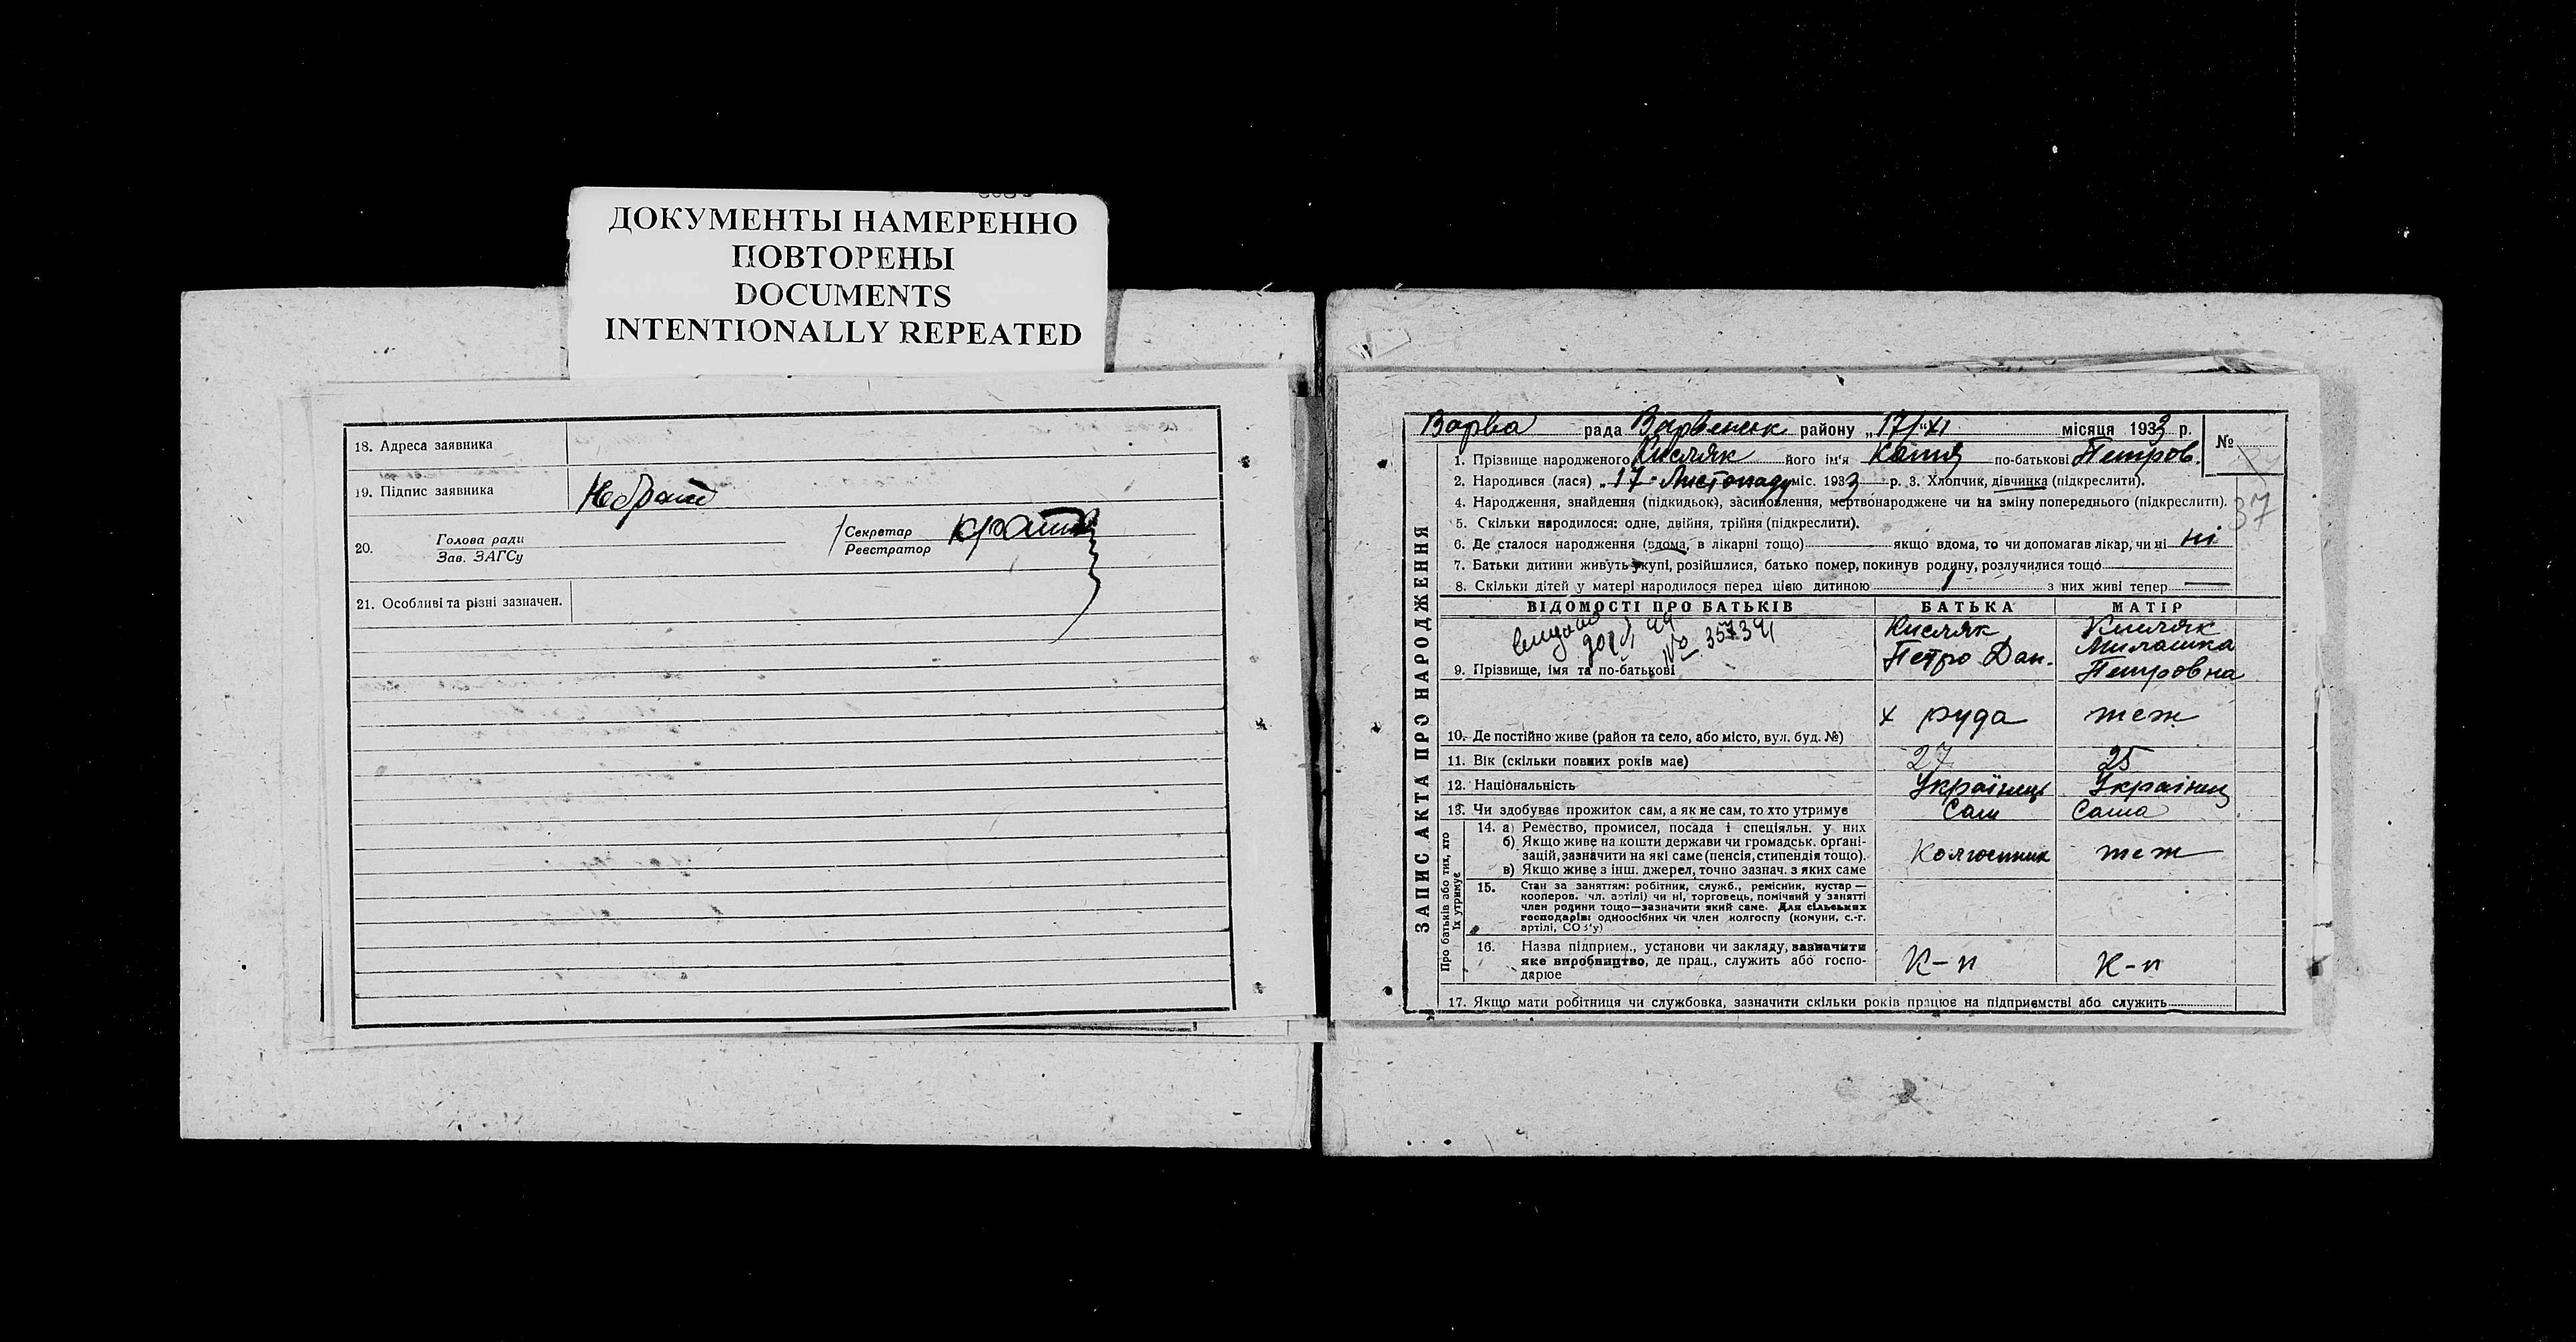 ДОКУМЕНТЫ НАМЕРЕННО
ПОВТОРЕНЫ
DOCUMENTS
INTENTIONALLY REPEATED
18. Адреса заявника
19. Підпис заявника
20. Голова ради
Зав. ЗАГСу
Секретар
Реєстратор
21. Особливі та різні зазначен.
ЗАПИС АКТА ПРО НАРОДЖЕННЯ
Варва рада Варвенськ району „17/"XI місяця 1933 р. №
37
1. Прізвище народженого Кисляк його ім'я Катя по-батькові Петров.
2. Народився (лася) „17" Листопаду міс. 1933 р. 3. Хлопчик, дівчинка (підкреслити).
4. Народження, знайдення (підкидьок), засиновлення, мертвонароджене чи на зміну попереднього (підкреслити).
5. Скільки народилося: одне, двійня, трійня (підкреслити).
6. Де сталося народження (вдома, в лікарні тощо) якщо вдома, то чи допомагав лікар, чи ні ні
7. Батьки дитини живуть укупі, розійшлися, батько помер, покинув родину, розлучилися тощо
8. Скільки дітей у матері народилося перед цією дитиною 1 з них живі тепер —
ВІДОМОСТІ ПРО БАТЬКІВ БАТЬКА МАТІР
№ 357391
9. Прізвище, імя та по-батькові
Кисляк
Петро Дан.
Кисляк
Милашка
Петровна
10. Де постійно живе (район та село, або місто, вул. буд. №) х руда теж
11. Вік (скільки повних років має) 27 25
12. Національність Українець Українц
13. Чи здобуває прожиток сам, а як не сам, то хто утримує Сам Сама
Про батьків або тих, хто
їх утримує
14. а) Ремество, промисел, посада і спеціяльн. у них
б) Якщо живе на кошти держави чи громадськ. органі-
зацій, зазначити на які саме (пенсія, стипендія тощо).
в) Якщо живе з інш. джерел, точно зазнач. з яких саме
Колгоспник теж
15. Стан за заняттям: робітник, служб., ремісник, кустар —
кооперов. (чл. артілі) чи ні, торговець, помічний у занятті
член родини тощо—зазначити який саме. Для сільських
господарів: одноосібних чи член колгоспу (комуни, с.-г.
артілі, СОЗ'у)
16. Назва підприєм., установи чи закладу, зазначити
яке виробництво, де прац., служить або госпо-
дарює
К-п К-п
17. Якщо мати робітниця чи службовка, зазначити скільки років працює на підприємстві або служить